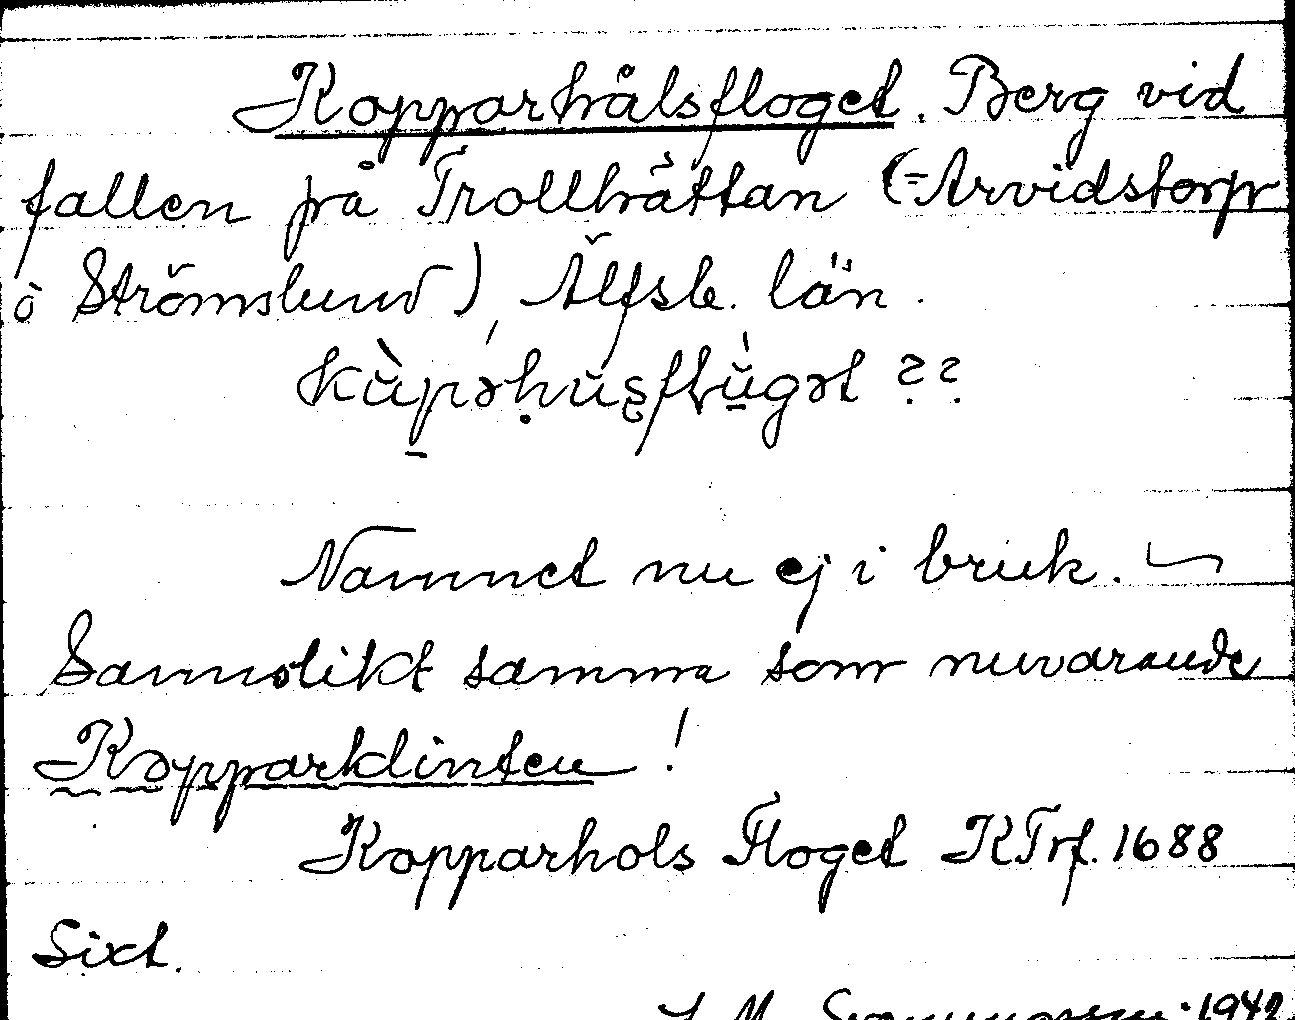 Kopparhålsfloget. Berg vid
fallen på Trollhättan (=Arvidstorp
o Strömslund), Älfsb. län.
??
Namnet nu ej i bruk.
Sannolikt samma som nuvarande
Kopparklinten!
Kopparhols Floget KTrf. 1688
Sixt.
1942